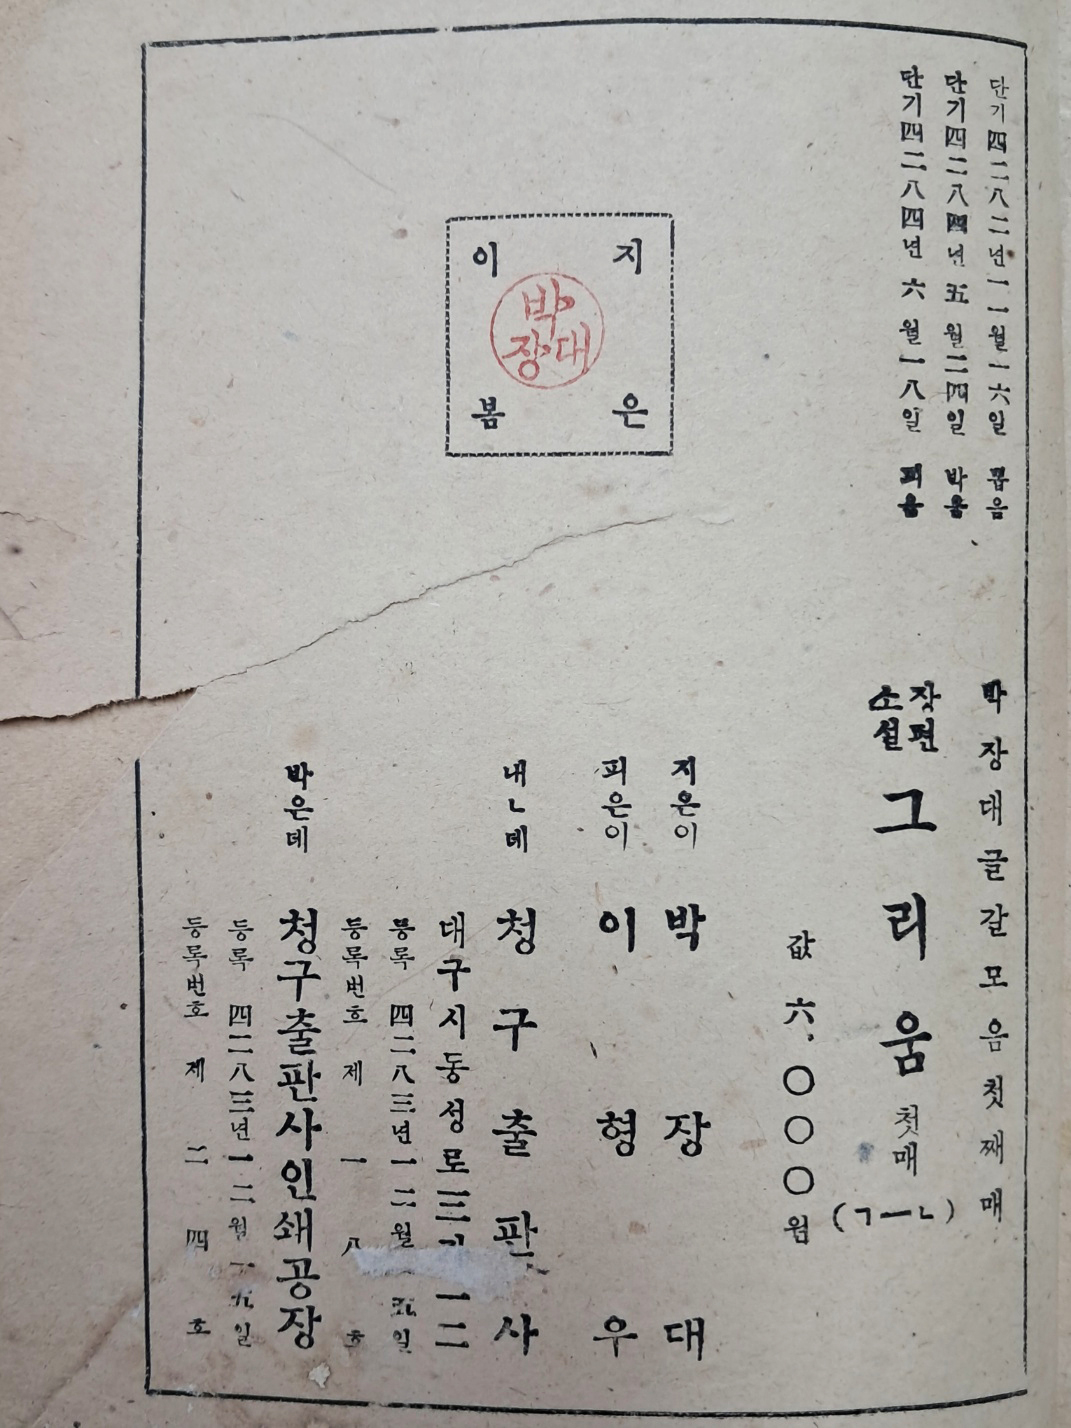 단기四二八二년一一월一六일 뭅음
단기四二八四년 五월二四일 박음
단기四二八四년 六월一八일 피움
박장대글갈모음첫째매
장편소설 그리움 첫매 (ㄱ—ㄴ)
값 六.〇〇〇원
지은이 박장대
피은이 이형우
내ㄴ데 청구출판사
대구시동성로三가 一二
등록 四二八三년一二월一五일
등록번호 제一八호
박은데 청구출판사인쇄공장
등록 四二八三년一二월一五일
등록번호 제二四호
지은
이봄
박대장